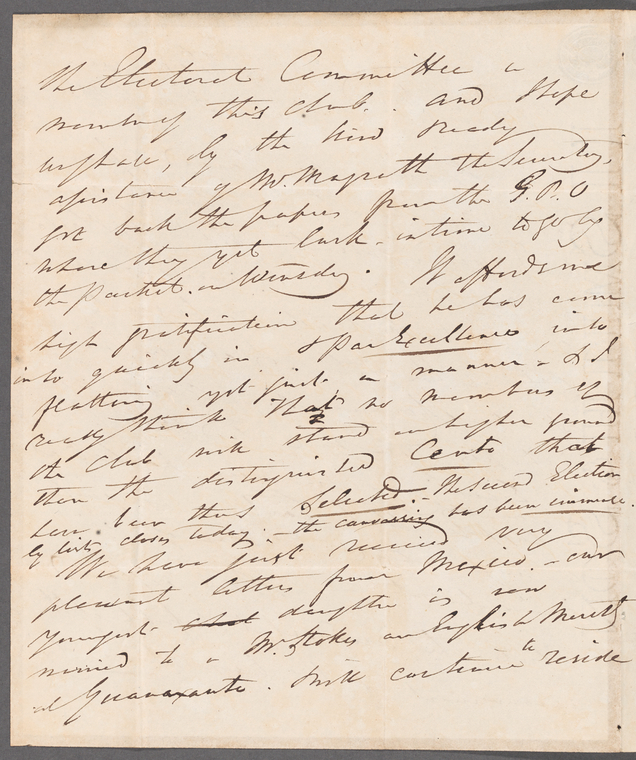 the Electoral Committee a
member of this Club. and I hope
by the kind & ready
assistance of Mr. Magrath the Secretary,
got back the papers from the G.P.O
where they yet lurk - in time to go by
the Packet. on Wensday. It affords me
high gratification that he has come
into quickly in & Par Excellence into
flattering yet just a manner - & I
really think that no members of
the Club will stand on higher ground
than the distinguished Cento that
have been thus Selected. - The second Election
by lists closes today. - the canvassing has been immense.
We have just received very
pleasant letters from Mexico. - our
youngest daughter is now
married to a Mr. Stokes an English Mercht
at Guanaxuato. & will continue to reside